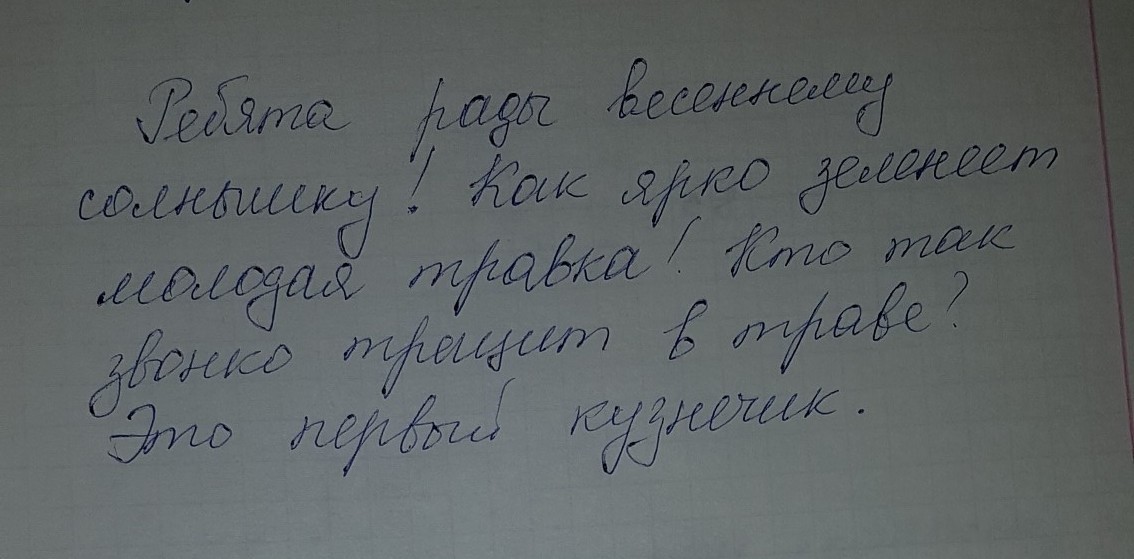 Ребята рады весеннему
солнышку! Как ярко зеленеет
молодая травка! Кто так
звонко трещит в траве?
Это первый кузнечик.